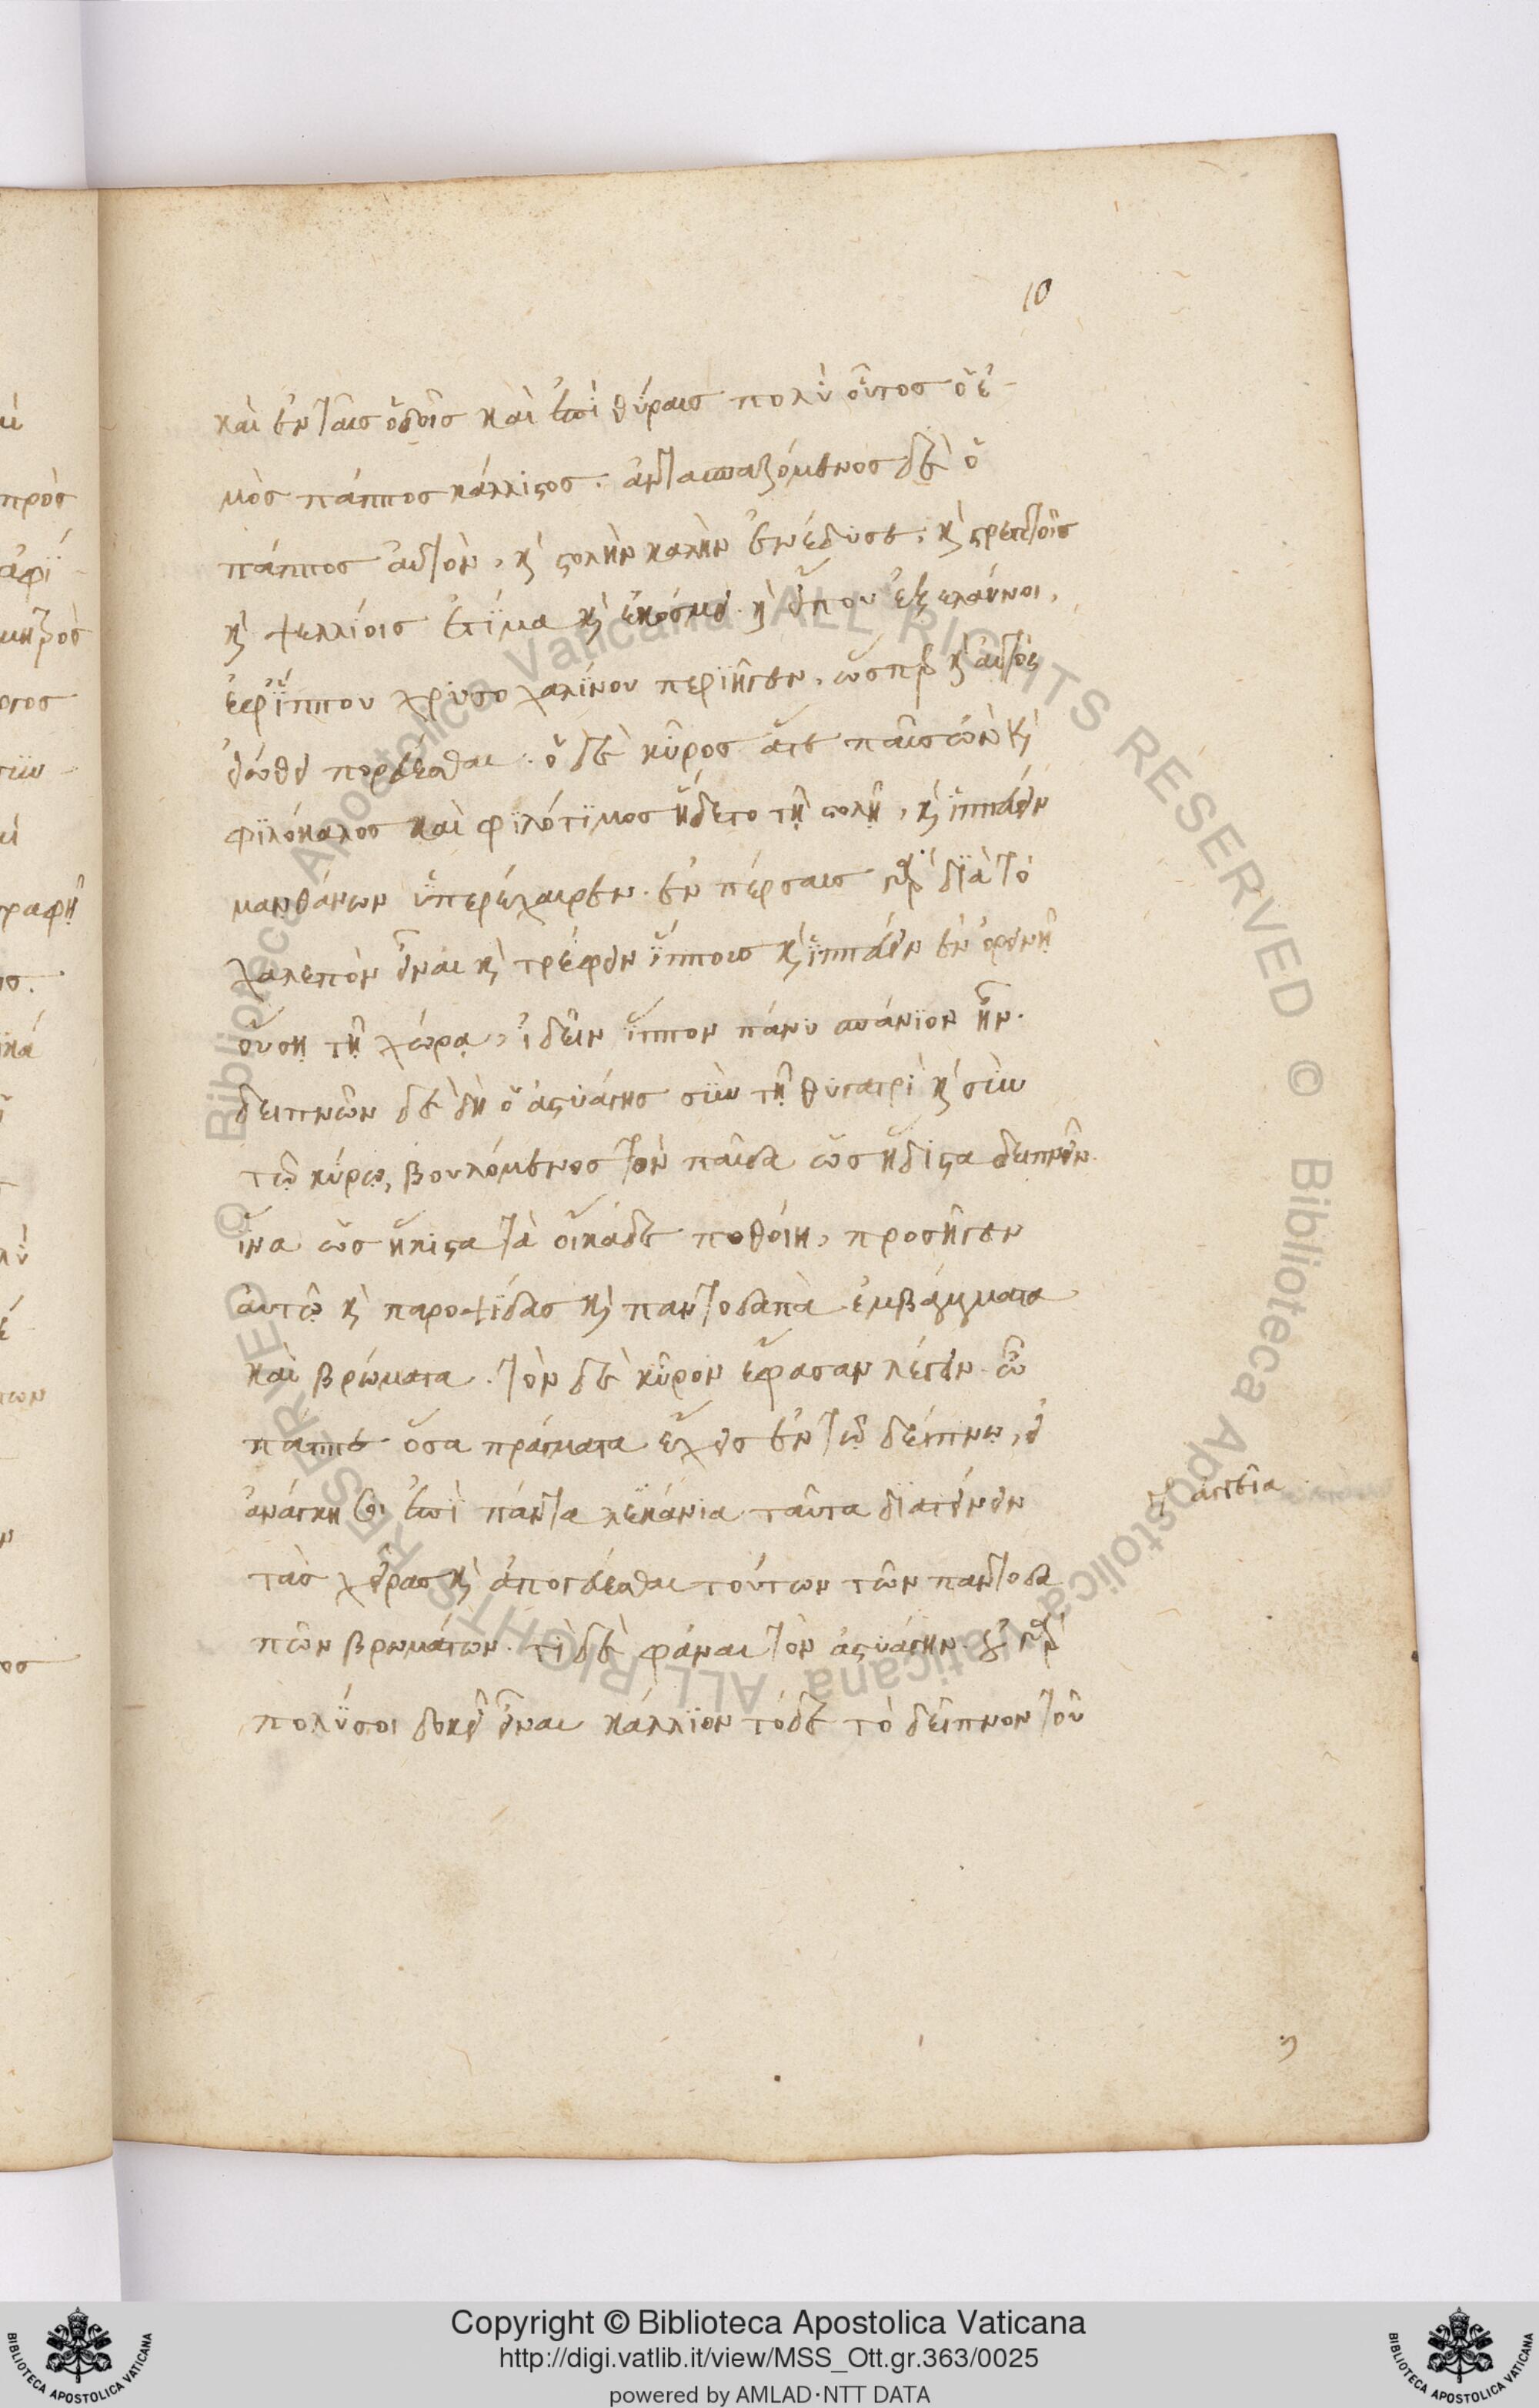 10
καὶ ἐν ταῖς ὁδοῖς καὶ ἐπὶ θύραις πολὺ οὗτος ὁ ἐ-
μὸς πάππος κάλλιστος· ἀντασπαζόμενος δὲ ὁ
πάππος αὐτὸν, καὶ στολὴν καλὴν ἐνέδυσε, καὶ στρεπτοῖς
καὶ ψελλίοις ἐτίμα καὶ ἐκόσμει· καὶ εἴ που ἐξελαύνοι,
ἐφ' ἵππου χρυσοχαλίνου περιῆγεν, ὥσπερ καὶ αὐτὸς
εἰώθει πορεύεσθαι· ὁ δὲ κῦρος ἅτε παῖς ὢν καὶ
φιλόκαλος καὶ φιλότιμος ἥδετο τῇ στολῇ, καὶ ἱππεύειν
μανθάνων ὑπερέχαιρεν. ἐν πέρσαις γὰρ διὰ τὸ
χαλεπὸν εἶναι καὶ τρέφειν ἵππους καὶ ἱππεύειν ἐν ὀρεινῇ
οὔσῃ τῇ χώρᾳ, ἰδεῖν ἵππον πάνυ σπάνιον ἦν.
δειπνῶν δὲ δὴ ὁ ἀστυάγης σὺν τῇ θυγατρὶ καὶ σὺν
τῷ κύρῳ, βουλόμενος τὸν παῖδα ὡς ἥδιστα δειπνεῖν
ἵνα ὡς ἥκιστα τὰ οἴκαδε ποθοίη, προσῆγεν
αὐτῷ καὶ παροψίδας καὶ παντοδαπὰ ἐμβάμματα
καὶ βρώματα. τὸν δὲ κῦρον ἔφασαν λέγειν· ὦ
πάππε ὅσα πράγματα ἔχεις ἐν τῷ δείπνῳ, εἰ
ἀνάγκη σοι ἐπὶ πάντα λεκάνια ταῦτα διατείνειν
τὰς χεῖρας καὶ ἀπογεύεσθαι τούτων τῶν παντοδα
πῶν βρωμάτων. τί δὲ φάναι τὸν ἀστυάγην· οὐ γὰρ
πολύ σοι δοκεῖ εἶναι κάλλιον τόδε τὸ δεῖπνον τοῦ
Copyright © Biblioteca Apostolica Vaticana
http://digi.vatlib.it/view/MSS_Ott.gr.363/0025
powered by AMLAD·NTT DATA